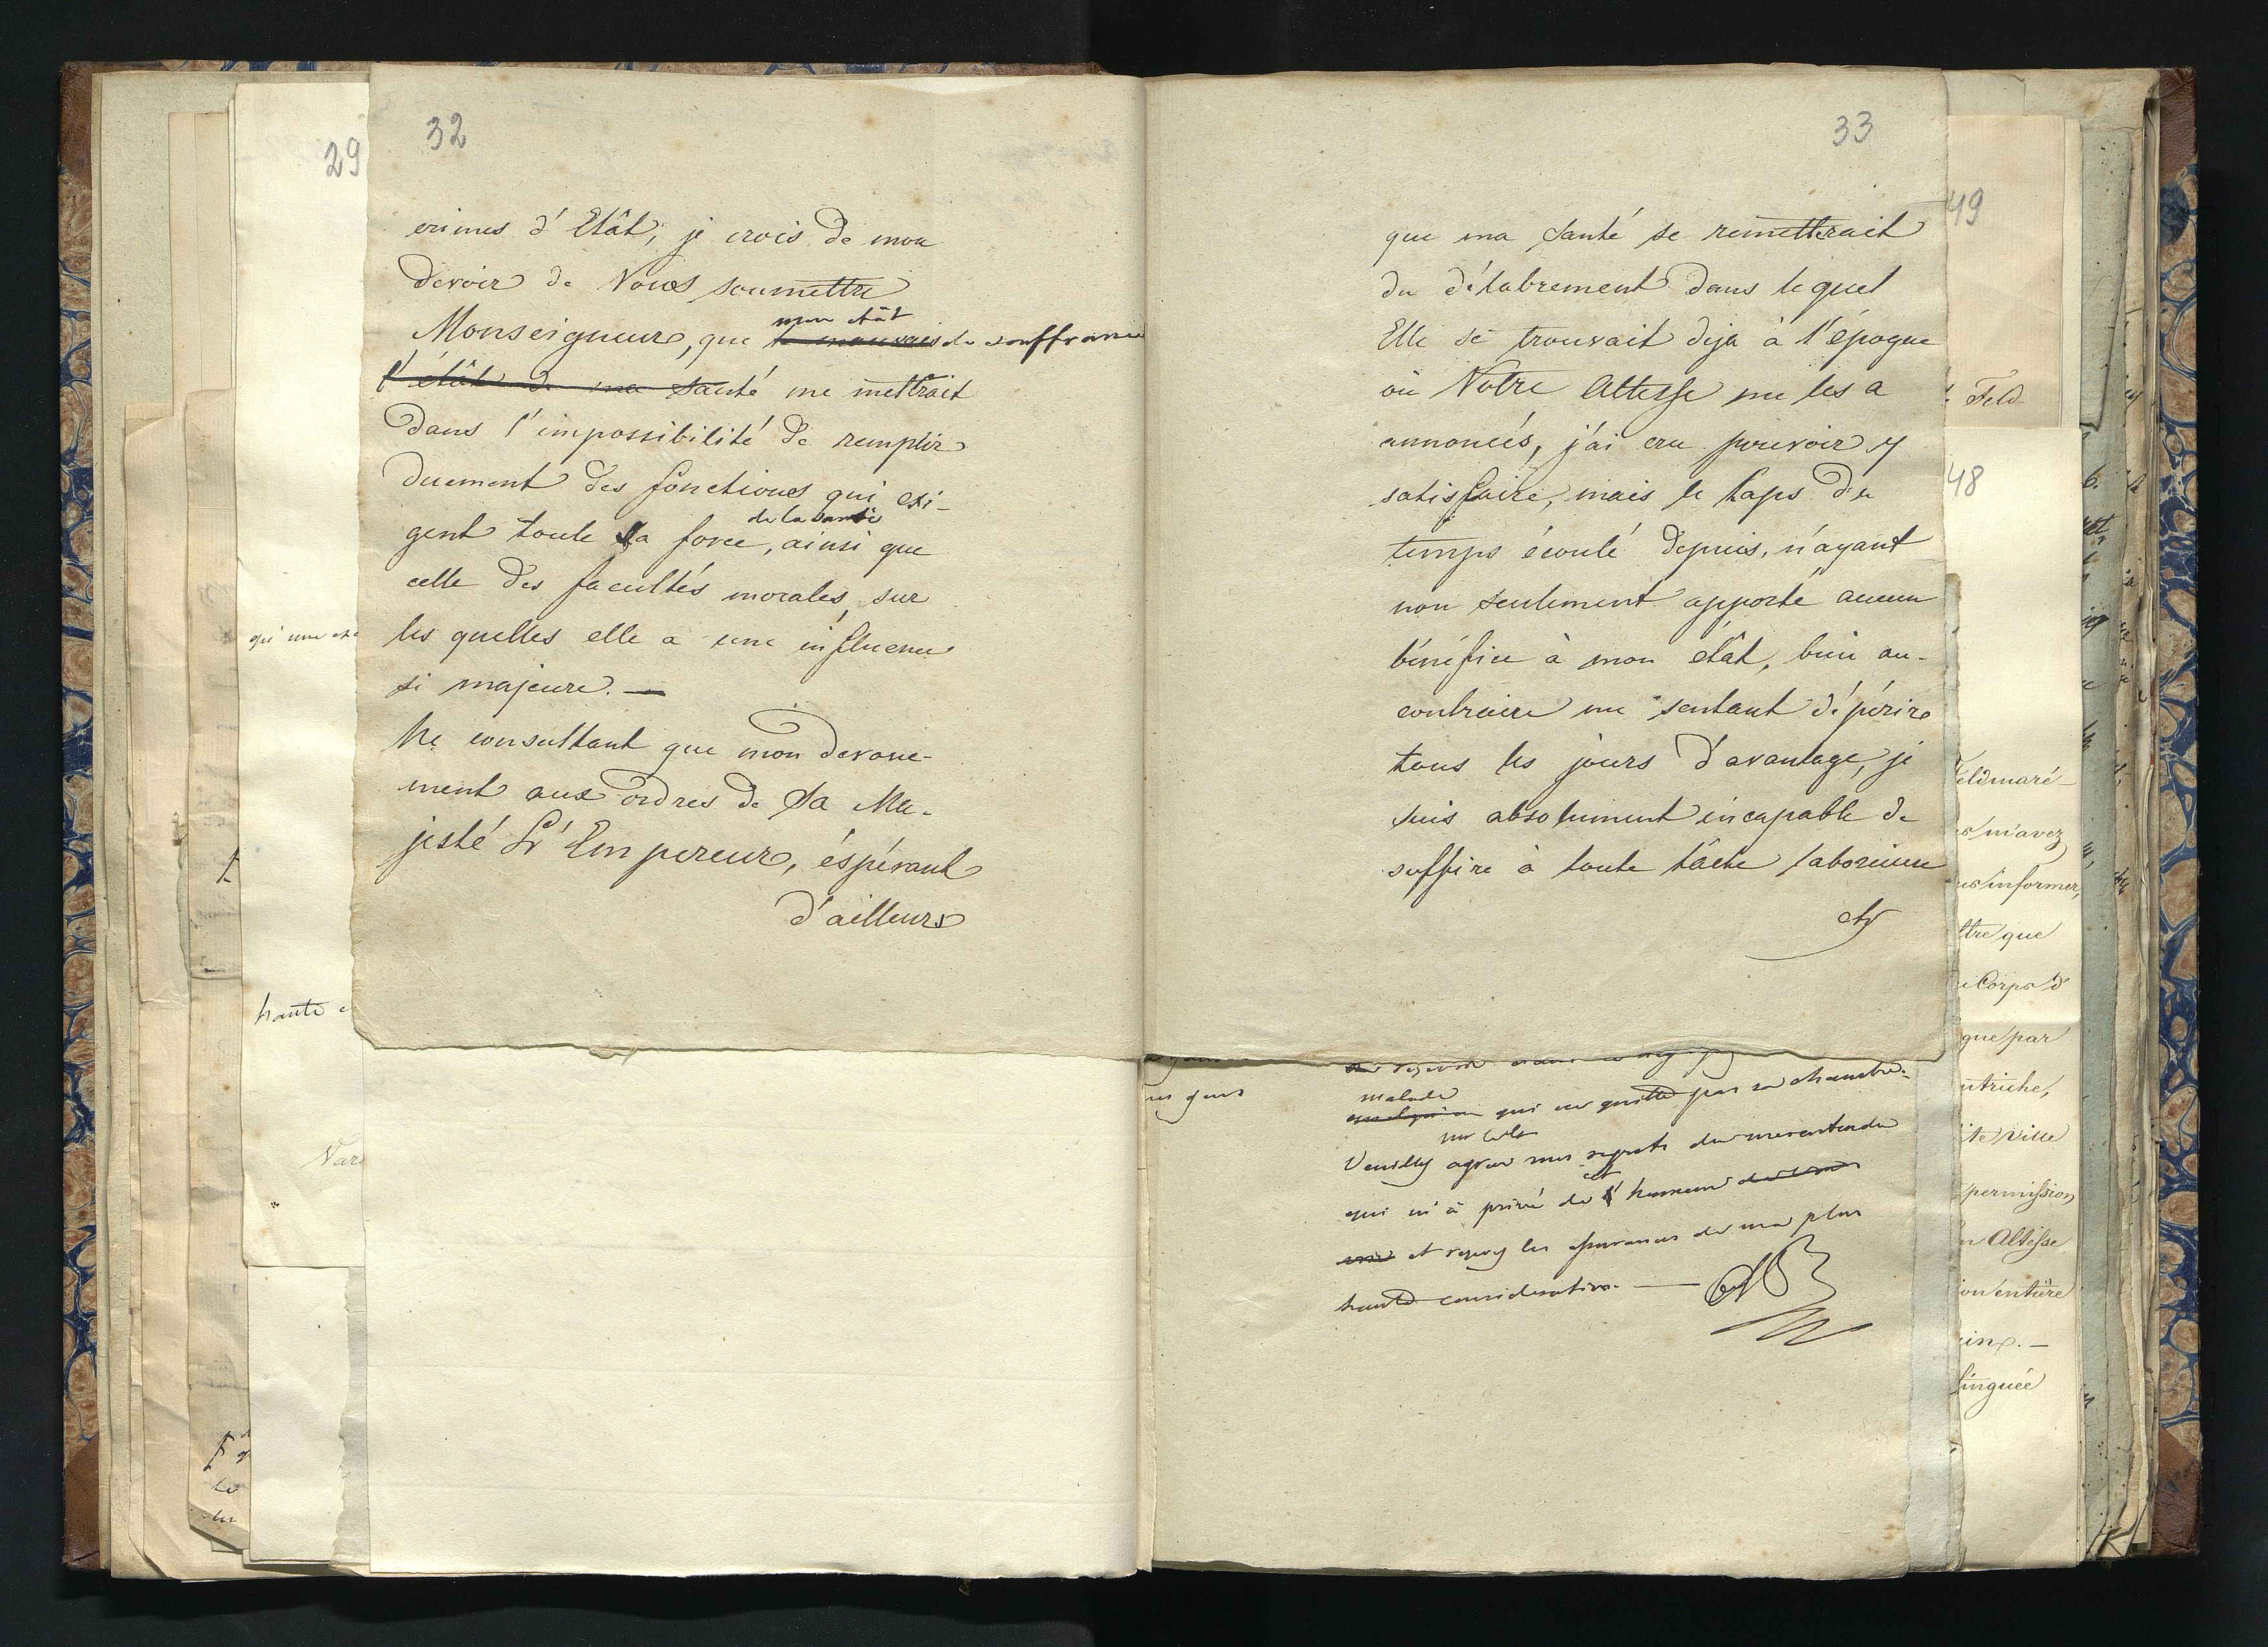 32
crimes d'Etât, je crois de mon
devoir de Vous soumettre
mon etât
Monseigneur, que le mauvais de souffrance
l'étât de ma santé me mettrait
dans l'impossibilité de remplir
duement des fonctions qui exi-
de la santé
gent toute la force, ainsi que
celle des facultés morales, sur
les quelles elle a une influence
si majeure. —
Ne consultant que mon devoue-
ment aux ordres de Sa Ma-
jesté L'Empereur, éspérant
d'ailleurs
33
que ma santé se remetterait
du délabrement dans lequel
Elle se trouvait deja à l'époque
où Votre Altesse me les a
annoncés, j'ai cru pouvoir y
satisfaire, mais le laps du
temps écoulé depuis, n'ayant
non seulement apporté aucun
bénéfice à mon étât, bien au-
contraire me sentant dépérir
tous les jours d'avantage, je
suis absolument incapable de
suffire à toute tâche laborieuse
et
malade
qui ne quitte pas sa chambre.
Veuillez agréer mes regrets du mesentendu
et
qui m'à privé de l'honneur
et recevez les assurances de ma plus
haute consideration. —
29
qu'une
haute
49
Feld-
48
Feldmaré-
m'avez
informer,
que
Corps d
que par
utriche,
ville
permission
Altesse
entière
tinguée